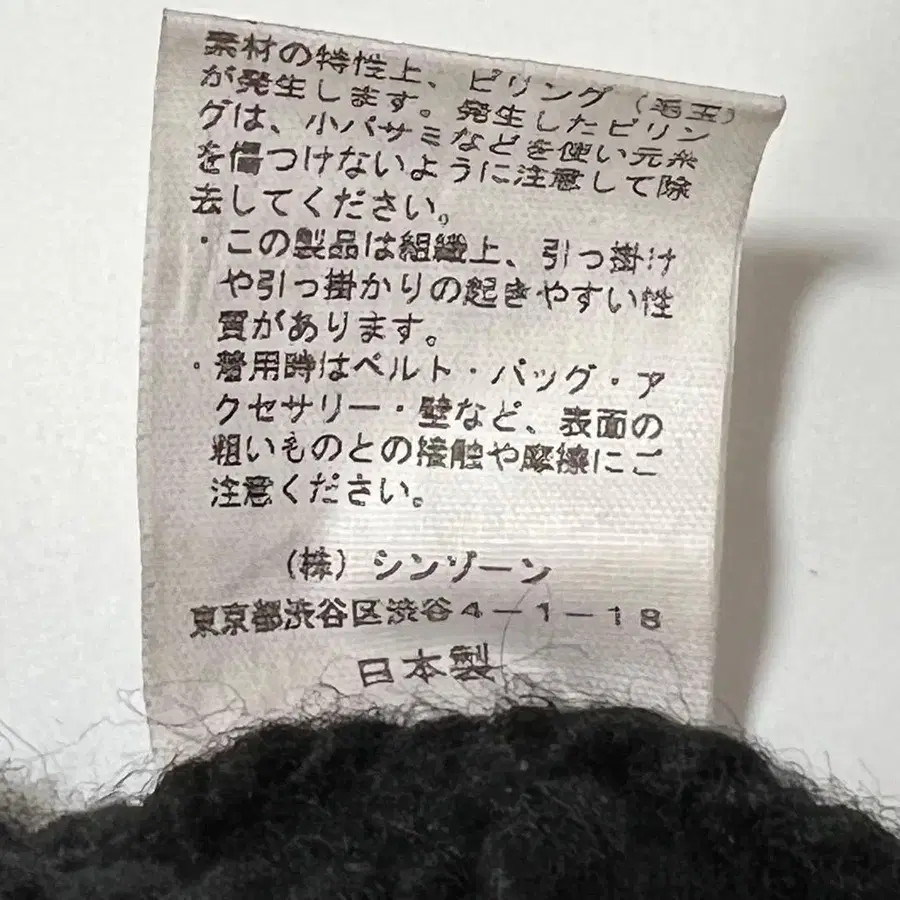 素材の特性上、ピリング（毛玉）
が発生します。発生したピリン
グは、小バサミなどを使い元糸
を傷つけないように注意して除
去してください。
・この製品は組織上、引っ掛け
や引っ掛かりの起きやすい性
質があります。
・着用時はベルト・バッグ・ア
クセサリー・壁など、表面の
粗いものとの接触や摩擦にご
注意ください。
（株）シンゾーン
東京都渋谷区渋谷4－1－18
日本製